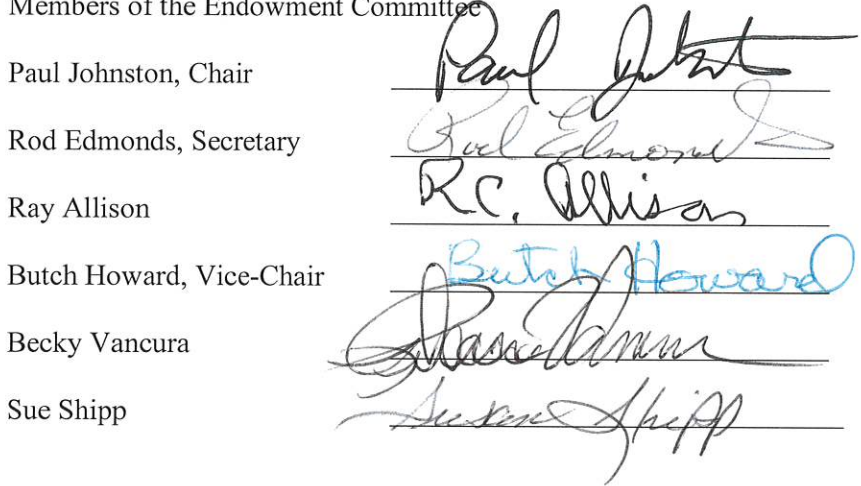 Members of the Endowment Committee
Paul Johnston, Chair Paul
Rod Edmonds, Secretary Rod Edmonds
Ray Allison R.C. Allison
Butch Howard, Vice-Chair Butch Howard
Becky Vancura
Sue Shipp Susan Shipp